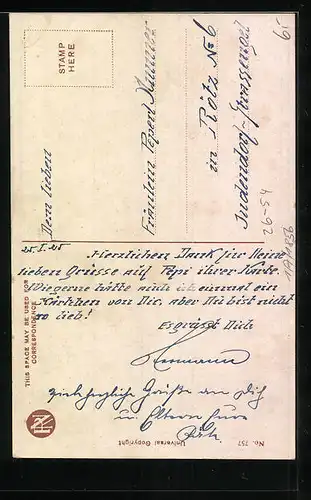 STAMP
HERE
Dem lieben
Fräulein Peperl
in Rötz No 6
Judendorf-Strassengel
65
26-54
25.I.25
Herzlichen Dank für Deine
lieben Grüsse auf Pepi ihrer Karte.
Wiegerne hätte auch ich einmal ein
Kärtchen von Dir, aber Du bist nicht
so lieb!
Es grüsst Dich
Hermann
Viele herzliche Grüße an Dich
u. Eltern
THIS SPACE MAY BE USED FOR
CORRESPONDENCE
Universal Copyright
No. 757